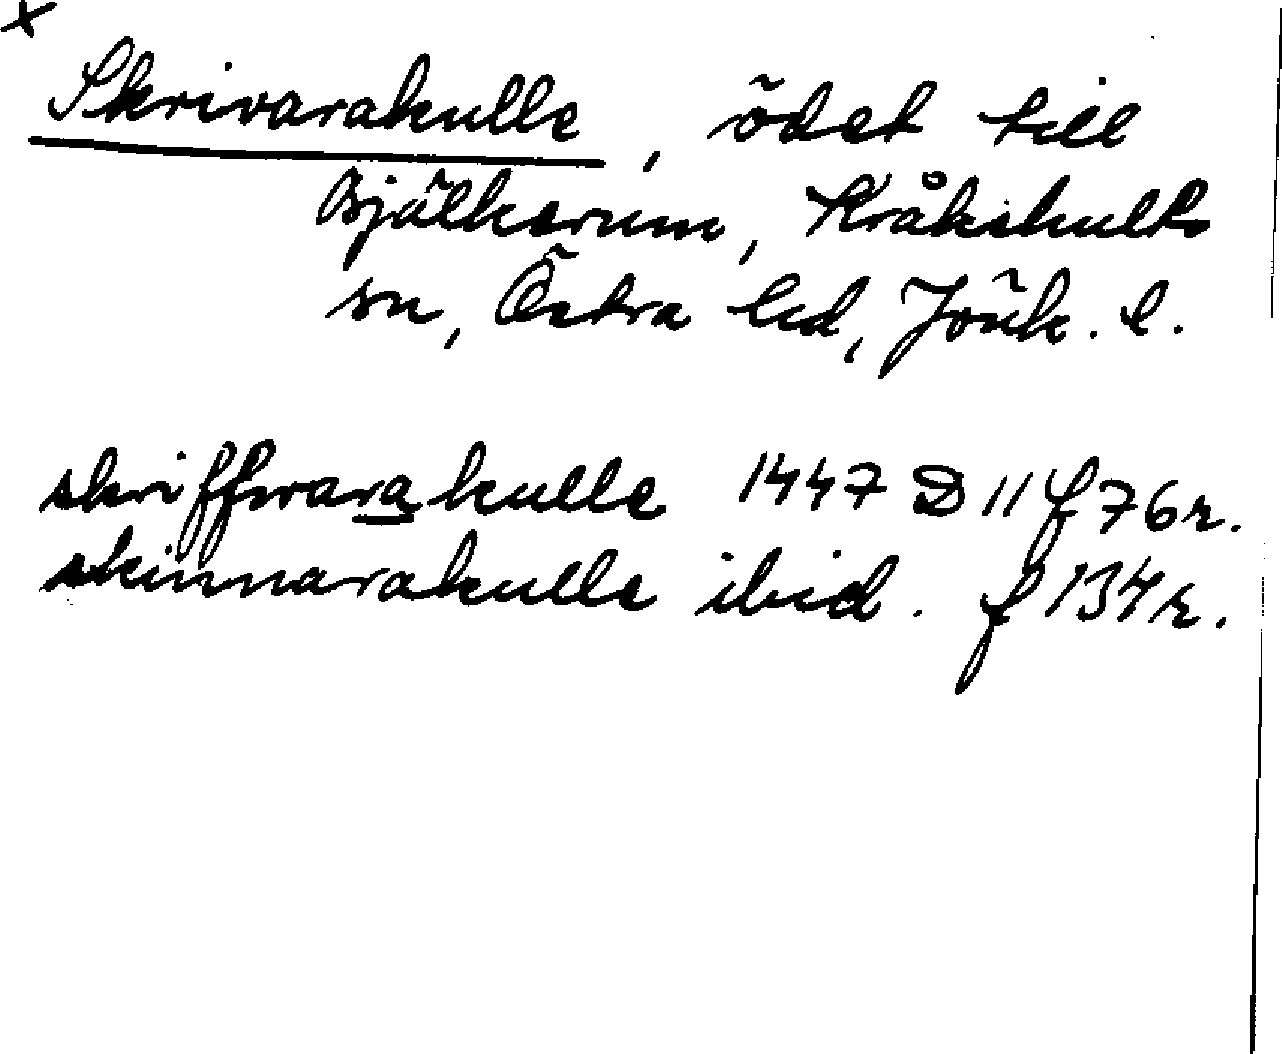 x
Skrivarakulle, ödet till
Bjälkerum, Kråkshults
sn, Östra hd, Jönk. l.
skriffwarakulle 1447 D 11 f 76 r.
skinnarakulle ibid. f 134 r.